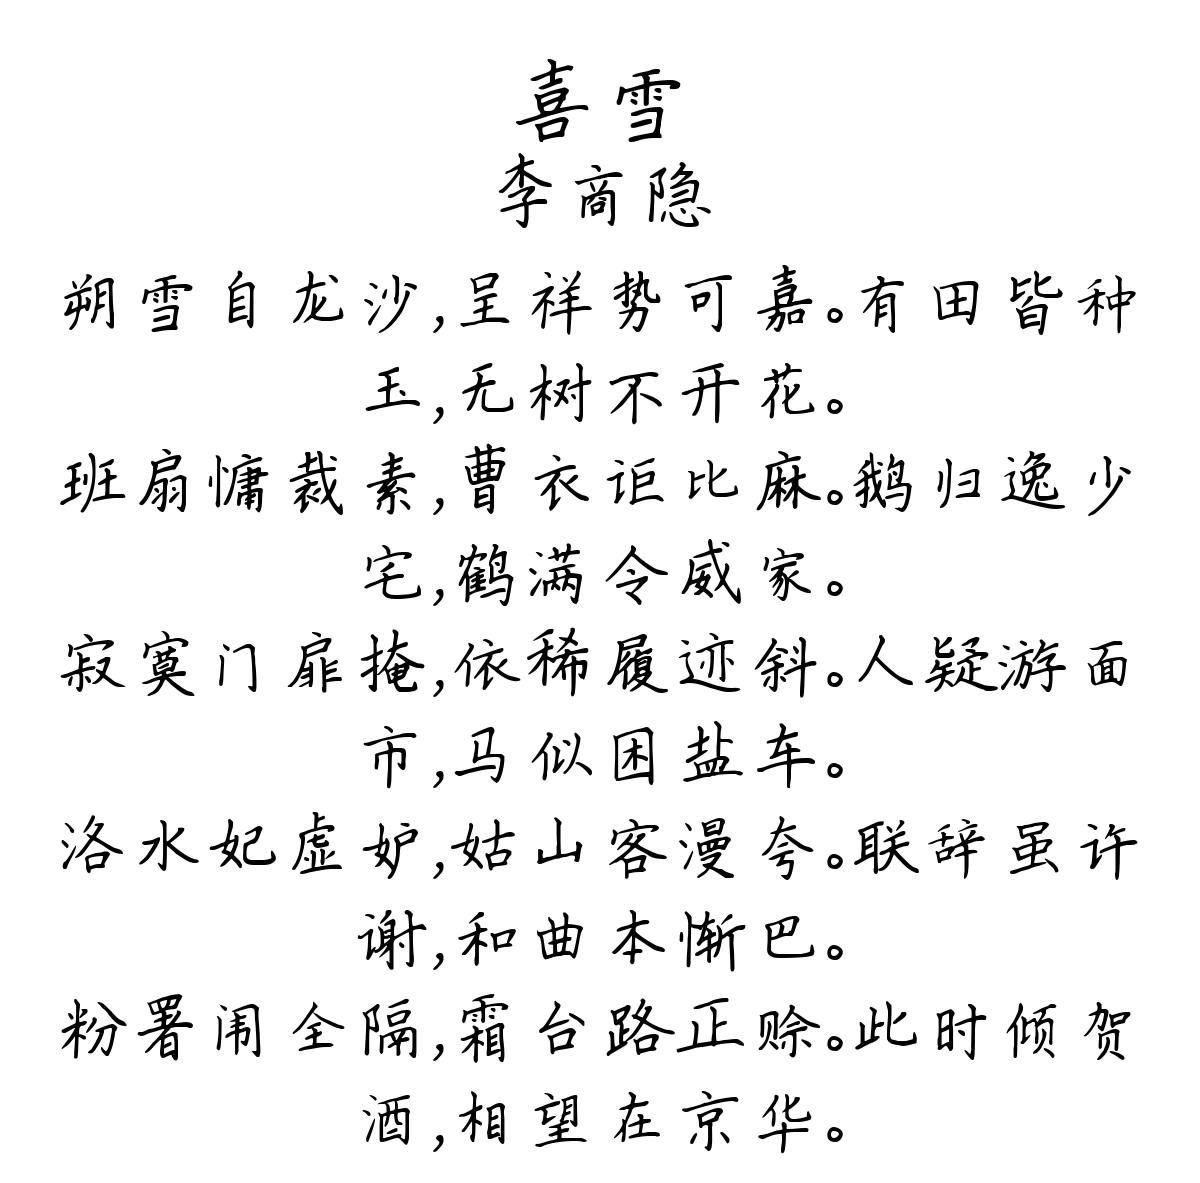 喜雪
李商隐
朔雪自龙沙,呈祥势可嘉。有田皆种
玉,无树不开花。
班扇慵裁素,曹衣讵比麻。鹅归逸少
宅,鹤满令威家。
寂寞门扉掩,依稀履迹斜。人疑游面
市,马似困盐车。
洛水妃虚妒,姑山客漫夸。联辞虽许
谢,和曲本惭巴。
粉署闱全隔,霜台路正赊。此时倾贺
酒,相望在京华。